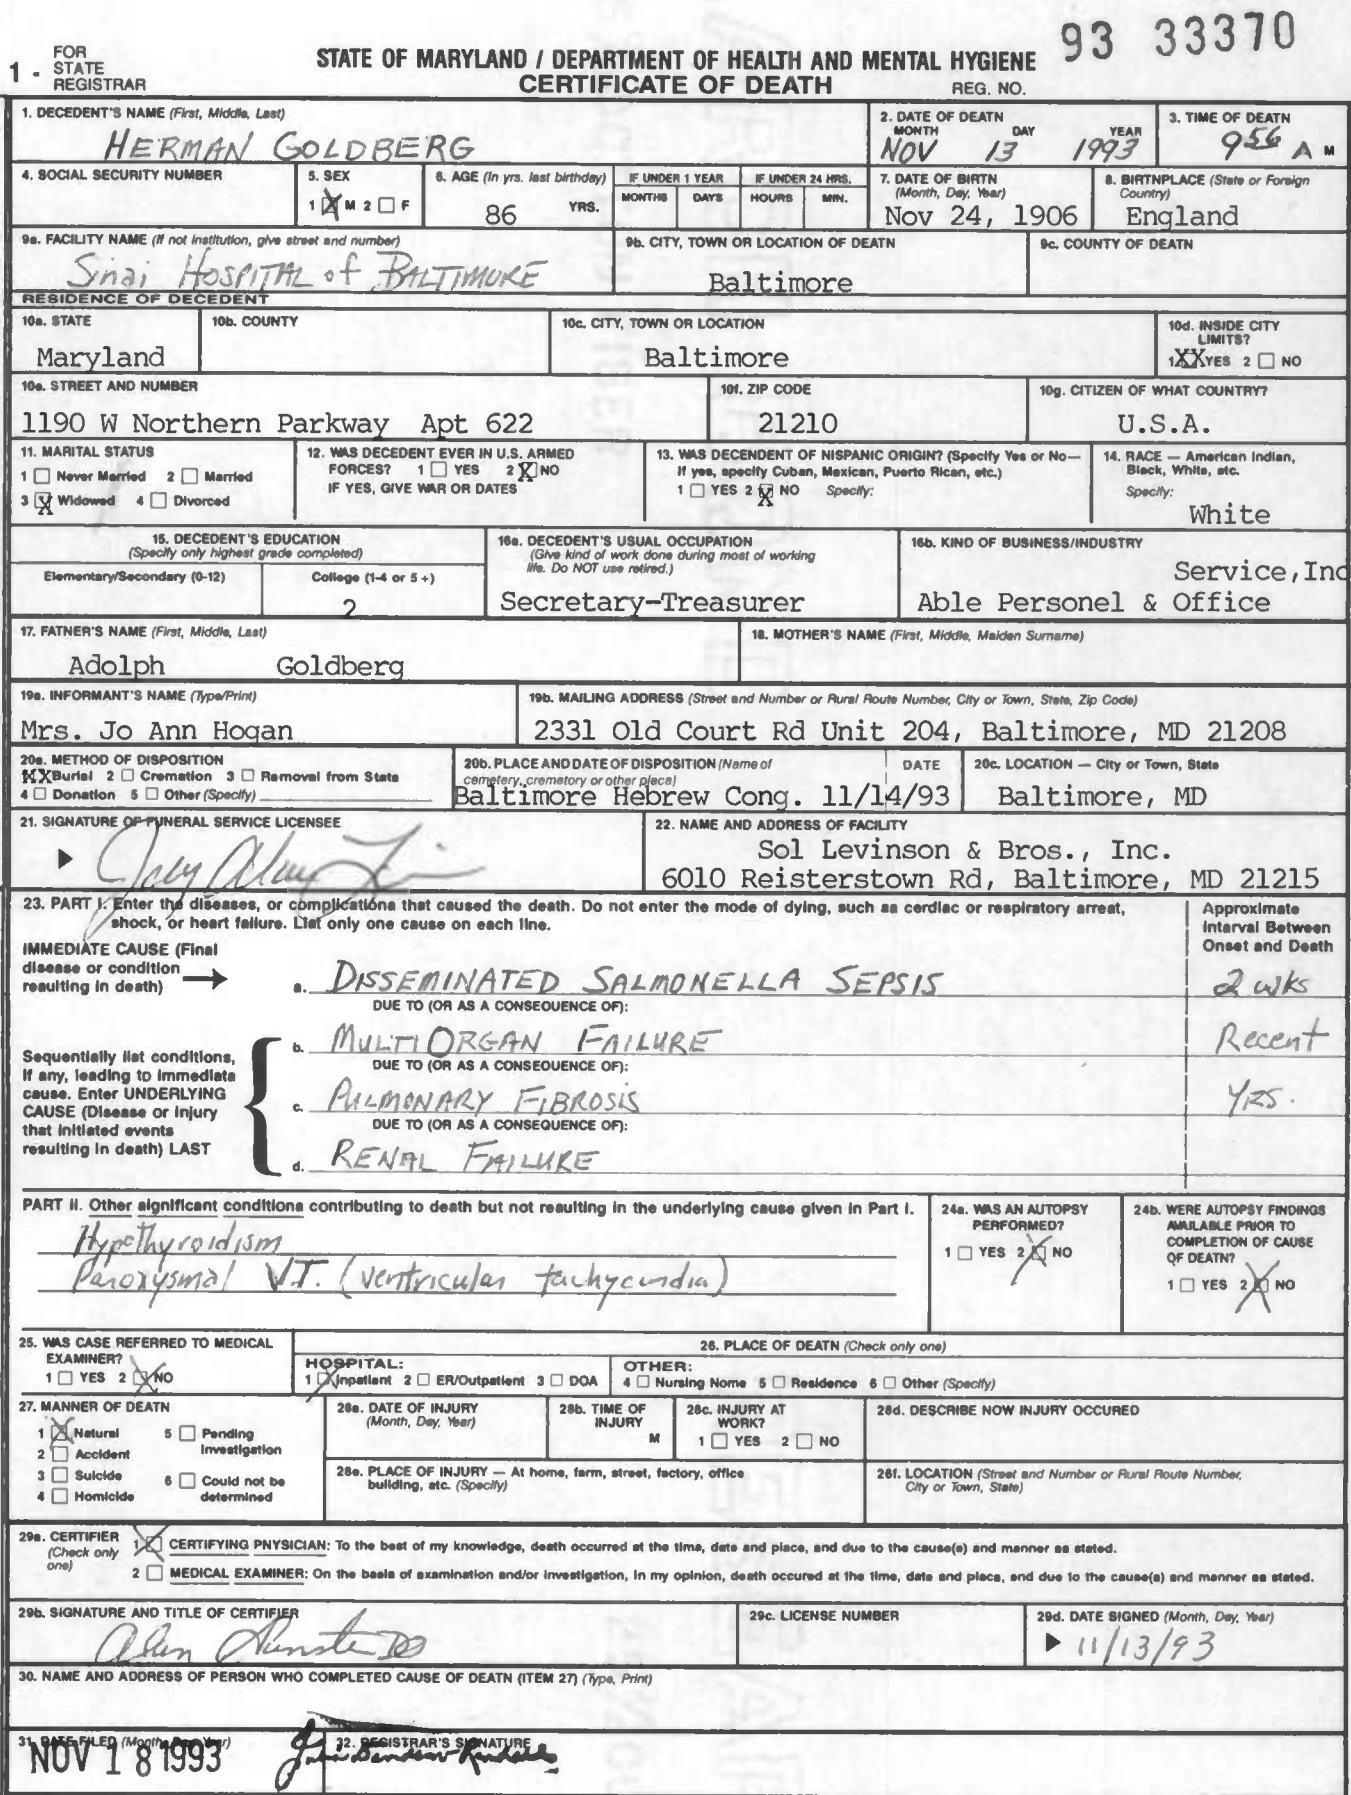 93 33370
FOR
1 - STATE
REGISTRAR
STATE OF MARYLAND / DEPARTMENT OF HEALTH AND MENTAL HYGIENE
CERTIFICATE OF DEATH
REG. NO.
1. DECEDENT'S NAME (First, Middle, Last)
HERMAN GOLDBERG
2. DATE OF DEATH
MONTH DAY YEAR
NOV 13 1993
3. TIME OF DEATH
9 56 A M
4. SOCIAL SECURITY NUMBER
5. SEX
1 X M 2 ☐ F
6. AGE (In yrs. last birthday)
86 YRS.
IF UNDER 1 YEAR
MONTHS DAYS
IF UNDER 24 HRS.
HOURS MIN.
7. DATE OF BIRTH
(Month, Day, Year)
Nov 24, 1906
8. BIRTHPLACE (State or Foreign
Country)
England
9a. FACILITY NAME (If not institution, give street and number)
Sinai HOSPITAL of BALTIMORE
9b. CITY, TOWN OR LOCATION OF DEATH
Baltimore
9c. COUNTY OF DEATH
RESIDENCE OF DECEDENT
10a. STATE
Maryland
10b. COUNTY
10c. CITY, TOWN OR LOCATION
Baltimore
10d. INSIDE CITY
LIMITS?
1 XX YES 2 ☐ NO
10e. STREET AND NUMBER
1190 W Northern Parkway Apt 622
10f. ZIP CODE
21210
10g. CITIZEN OF WHAT COUNTRY?
U.S.A.
11. MARITAL STATUS
1 ☐ Never Married 2 ☐ Married
3 X Widowed 4 ☐ Divorced
12. WAS DECEDENT EVER IN U.S. ARMED
FORCES? 1 ☐ YES 2 X NO
IF YES, GIVE WAR OR DATES
13. WAS DECENDENT OF HISPANIC ORIGIN? (Specify Yes or No—
If yes, specify Cuban, Mexican, Puerto Rican, etc.)
1 ☐ YES 2 X NO Specify:
14. RACE — American Indian,
Black, White, etc.
Specify:
White
15. DECEDENT'S EDUCATION
(Specify only highest grade completed)
Elementary/Secondary (0-12)
College (1-4 or 5 +)
2
16a. DECEDENT'S USUAL OCCUPATION
(Give kind of work done during most of working
life. Do NOT use retired.)
Secretary-Treasurer
16b. KIND OF BUSINESS/INDUSTRY
Service,Inc
Able Personel & Office
17. FATHER'S NAME (First, Middle, Last)
Adolph Goldberg
18. MOTHER'S NAME (First, Middle, Maiden Surname)
19a. INFORMANT'S NAME (Type/Print)
Mrs. Jo Ann Hogan
19b. MAILING ADDRESS (Street and Number or Rural Route Number, City or Town, State, Zip Code)
2331 Old Court Rd Unit 204, Baltimore, MD 21208
20a. METHOD OF DISPOSITION
XX Burial 2 ☐ Cremation 3 ☐ Removal from State
4 ☐ Donation 5 ☐ Other (Specify)
20b. PLACE AND DATE OF DISPOSITION (Name of
cemetery, crematory or other place)
DATE
Baltimore Hebrew Cong. 11/14/93
20c. LOCATION — City or Town, State
Baltimore, MD
21. SIGNATURE OF FUNERAL SERVICE LICENSEE
22. NAME AND ADDRESS OF FACILITY
Sol Levinson & Bros., Inc.
6010 Reisterstown Rd, Baltimore, MD 21215
23. PART I. Enter the diseases, or complications that caused the death. Do not enter the mode of dying, such as cardiac or respiratory arrest,
shock, or heart failure. List only one cause on each line.
Approximate
Interval Between
Onset and Death
IMMEDIATE CAUSE (Final
disease or condition
resulting in death)
a. DISSEMINATED SALMONELLA SEPSIS 2 wks
DUE TO (OR AS A CONSEQUENCE OF):
b. MULTI ORGAN FAILURE Recent
DUE TO (OR AS A CONSEQUENCE OF):
Sequentially list conditions,
if any, leading to immediate
cause. Enter UNDERLYING
CAUSE (Disease or injury
that initiated events
resulting in death) LAST
c. PULMONARY FIBROSIS Yrs.
DUE TO (OR AS A CONSEQUENCE OF):
d. RENAL FAILURE
PART II. Other significant conditions contributing to death but not resulting in the underlying cause given in Part I.
Hypothyroidism
Paroxysmal V.T. (ventricular tachycardia)
24a. WAS AN AUTOPSY
PERFORMED?
1 ☐ YES 2 X NO
24b. WERE AUTOPSY FINDINGS
AVAILABLE PRIOR TO
COMPLETION OF CAUSE
OF DEATH?
1 ☐ YES 2 X NO
25. WAS CASE REFERRED TO MEDICAL
EXAMINER?
1 ☐ YES 2 X NO
26. PLACE OF DEATH (Check only one)
HOSPITAL:
1 X Inpatient 2 ☐ ER/Outpatient 3 ☐ DOA
OTHER:
4 ☐ Nursing Home 5 ☐ Residence 6 ☐ Other (Specify)
27. MANNER OF DEATH
1 X Natural 5 ☐ Pending
Investigation
2 ☐ Accident
3 ☐ Suicide 6 ☐ Could not be
4 ☐ Homicide determined
28a. DATE OF INJURY
(Month, Day, Year)
28b. TIME OF
INJURY
M
28c. INJURY AT
WORK?
1 ☐ YES 2 ☐ NO
28d. DESCRIBE HOW INJURY OCCURED
28e. PLACE OF INJURY — At home, farm, street, factory, office
building, etc. (Specify)
28f. LOCATION (Street and Number or Rural Route Number,
City or Town, State)
29a. CERTIFIER
(Check only
one)
1 X CERTIFYING PHYSICIAN: To the best of my knowledge, death occurred at the time, date and place, and due to the cause(s) and manner as stated.
2 ☐ MEDICAL EXAMINER: On the basis of examination and/or investigation, in my opinion, death occured at the time, date and place, and due to the cause(s) and manner as stated.
29b. SIGNATURE AND TITLE OF CERTIFIER
29c. LICENSE NUMBER
29d. DATE SIGNED (Month, Day, Year)
11/13/93
30. NAME AND ADDRESS OF PERSON WHO COMPLETED CAUSE OF DEATH (ITEM 27) (Type, Print)
31. DATE FILED (Month, Day, Year)
NOV 18 1993
32. REGISTRAR'S SIGNATURE